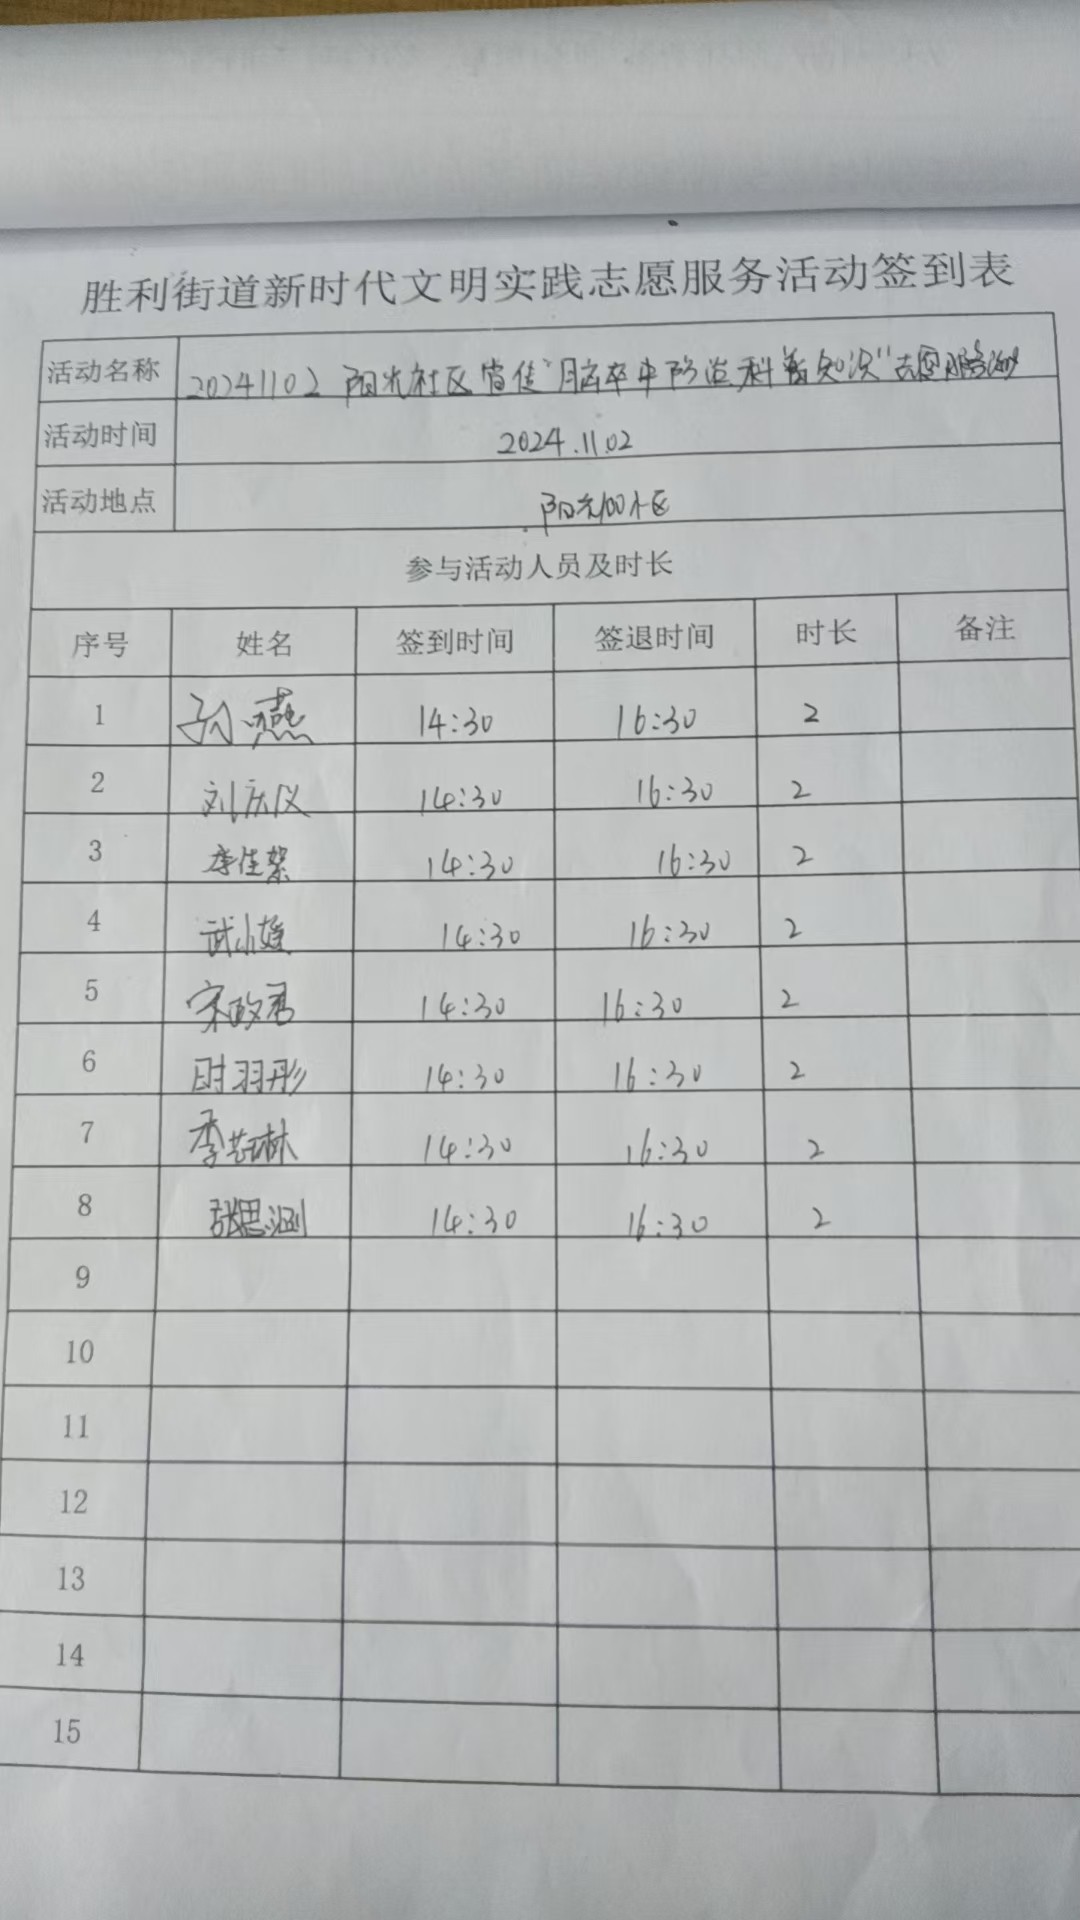 胜利街道新时代文明实践志愿服务活动签到表
活动名称 20241102 阳光社区宣传"脑卒中防治科普知识"志愿服务活动
活动时间 2024.11.02
活动地点 阳光100小区
参与活动人员及时长
序号 姓名 签到时间 签退时间 时长 备注
1 孙燕 14:30 16:30 2
2 刘庆仪 14:30 16:30 2
3 李佳絮 14:30 16:30 2
4 武小媛 14:30 16:30 2
5 宋政君 14:30 16:30 2
6 时羽彤 14:30 16:30 2
7 李艺琳 14:30 16:30 2
8 张思涵 14:30 16:30 2
9
10
11
12
13
14
15